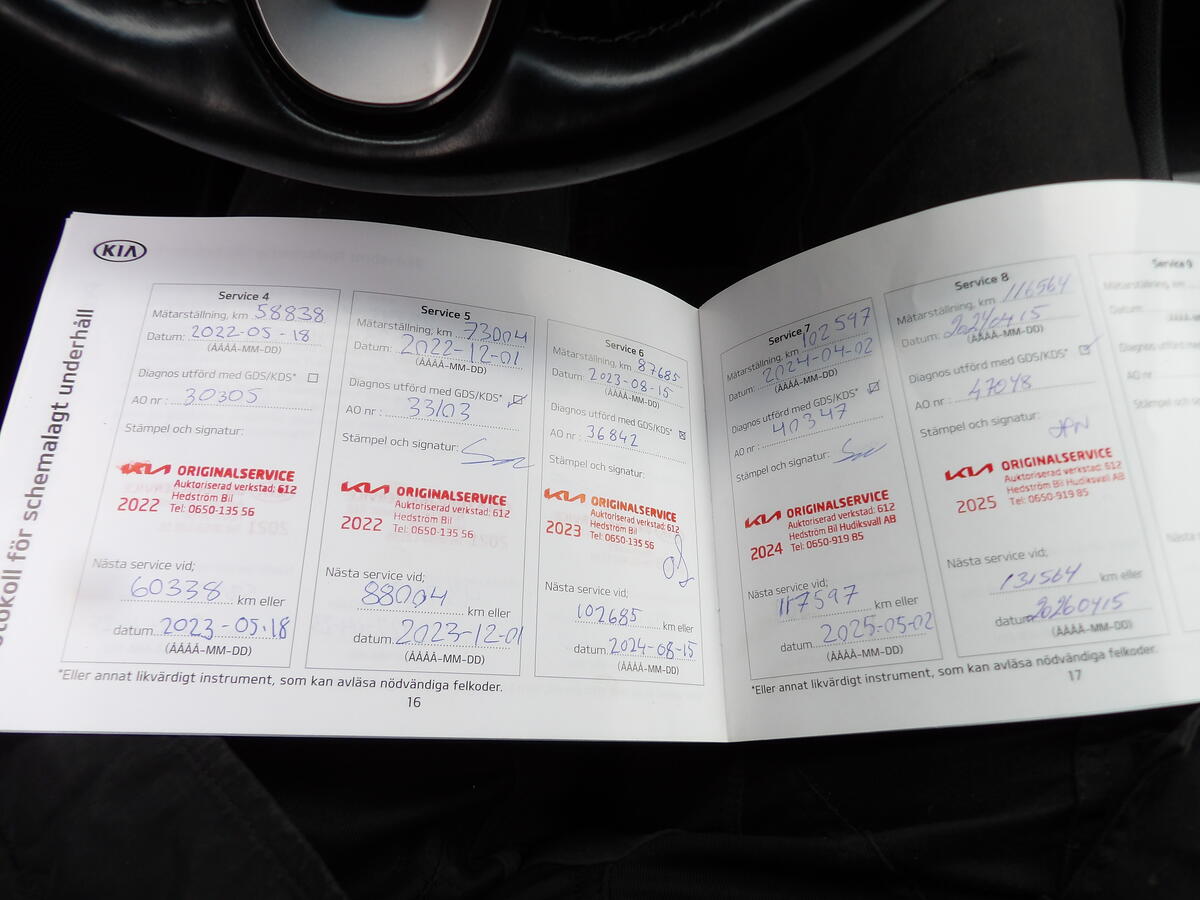 KIA
Protokoll för schemalagt underhåll
Service 4
Mätarställning, km 58838
Datum: 2022-05-18
(ÅÅÅÅ-MM-DD)
Diagnos utförd med GDS/KDS*
AO nr : 30305
Stämpel och signatur:
KIA ORIGINALSERVICE
Auktoriserad verkstad: 612
Hedström Bil
2022 Tel: 0650-135 56
Nästa service vid;
60338 km eller
datum 2023-05-18
(ÅÅÅÅ-MM-DD)
Service 5
Mätarställning, km 73004
Datum: 2022-12-01
(ÅÅÅÅ-MM-DD)
Diagnos utförd med GDS/KDS*
AO nr : 33103
Stämpel och signatur:
KIA ORIGINALSERVICE
Auktoriserad verkstad: 612
Hedström Bil
2022 Tel: 0650-135 56
Nästa service vid;
88004 km eller
datum 2023-12-01
(ÅÅÅÅ-MM-DD)
Service 6
Mätarställning, km 87685
Datum: 2023-08-15
(ÅÅÅÅ-MM-DD)
Diagnos utförd med GDS/KDS*
AO nr : 36842
Stämpel och signatur:
KIA ORIGINALSERVICE
Auktoriserad verkstad: 612
Hedström Bil
2023 Tel: 0650-135 56
Nästa service vid;
102685 km eller
datum 2024-08-15
(ÅÅÅÅ-MM-DD)
*Eller annat likvärdigt instrument, som kan avläsa nödvändiga felkoder.
16
Service 7
Mätarställning, km 102597
Datum: 2024-04-02
(ÅÅÅÅ-MM-DD)
Diagnos utförd med GDS/KDS*
AO nr : 40347
Stämpel och signatur:
KIA ORIGINALSERVICE
Auktoriserad verkstad: 612
Hedström Bil Hudiksvall AB
2024 Tel: 0650-919 85
Nästa service vid;
117597 km eller
datum 2025-05-02
(ÅÅÅÅ-MM-DD)
Service 8
Mätarställning, km 116564
Datum: 20240415
(ÅÅÅÅ-MM-DD)
Diagnos utförd med GDS/KDS*
AO nr : 47048
Stämpel och signatur:
KIA ORIGINALSERVICE
Auktoriserad verkstad: 612
Hedström Bil Hudiksvall AB
2025 Tel: 0650-919 85
Nästa service vid;
131564 km eller
datum 20260415
(ÅÅÅÅ-MM-DD)
Service 9
Mätarställning, km
Datum:
Diagnos utförd
AO nr :
Stämpel och
Nästa
*Eller annat likvärdigt instrument, som kan avläsa nödvändiga felkoder.
17